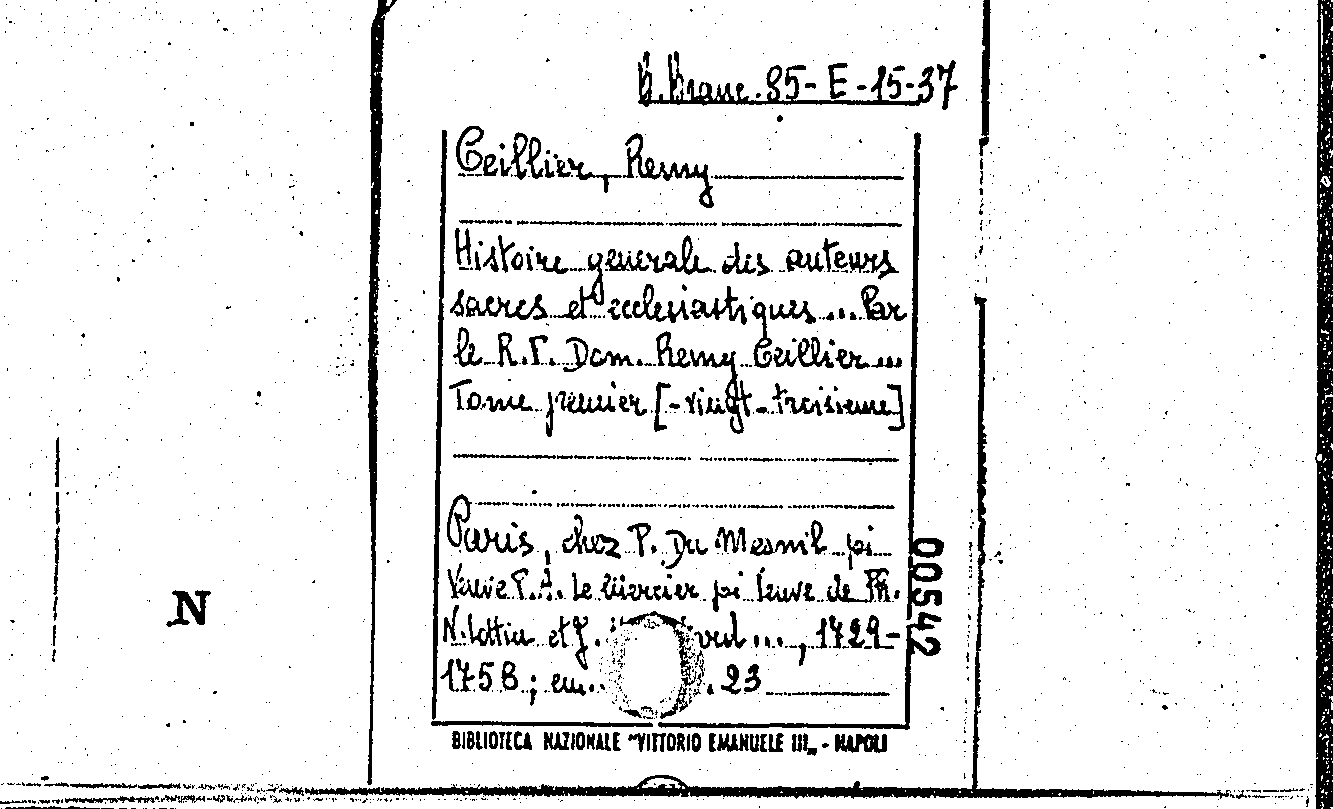 B. Branc. 85-E-15-37
Ceillier, Remy
Histoire generale des auteurs
sacres et ecclesiastiques ... Par
le R.P. Dom. Remy Ceillier ...
Tome premier [-vingt-troisieme]
Paris, chez P. Du Mesnil pi
Veuve P.A. Le Mercier pi Veuve de Ph.
N. Lottin et J. ..., 1729-
1758; . 23
00542
N
BIBLIOTECA NAZIONALE "VITTORIO EMANUELE III" - NAPOLI